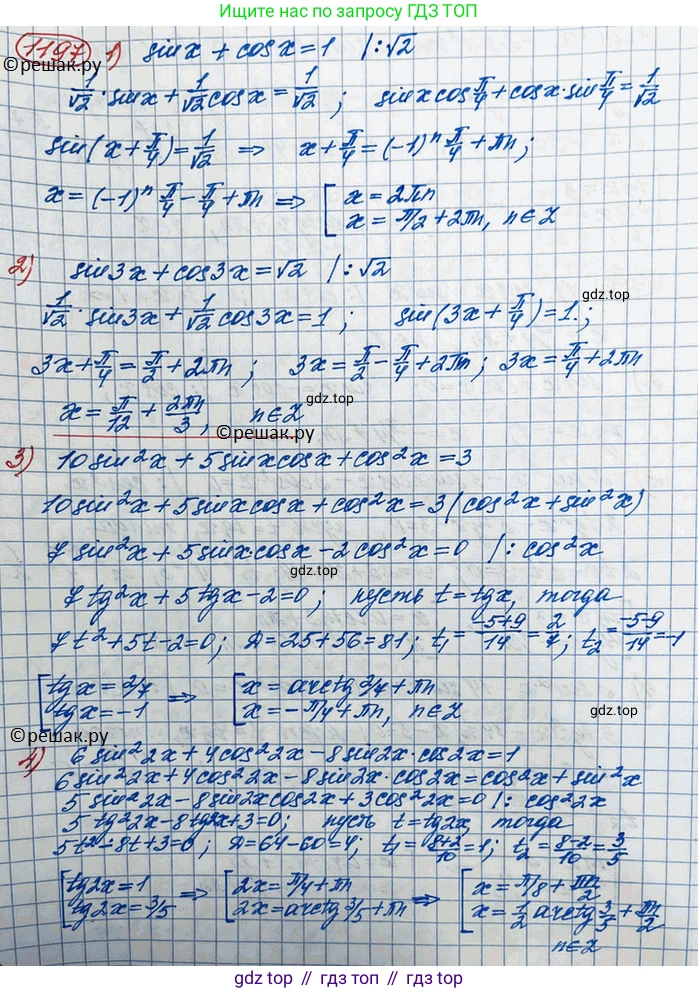 Больше решений по запросу ГДЗ ТОП
1197 1) sinx + cosx = 1 | : √2
©reшак.ру
1/√2 · sinx + 1/√2 cosx = 1/√2 ; sinx cos π/4 + cosx · sin π/4 = 1/√2
sin(x + π/4) = 1/√2 ⇒ x + π/4 = (-1)ⁿ π/4 + πn;
x = (-1)ⁿ π/4 - π/4 + πn ⇒ [ x = 2πn
x = π/2 + 2πn, n∈Z
2) sin3x + cos3x = √2 | : √2
gdz.top
1/√2 · sin3x + 1/√2 cos3x = 1 ; sin(3x + π/4) = 1 ;
3x + π/4 = π/2 + 2πn ; 3x = π/2 - π/4 + 2πn ; 3x = π/4 + 2πn
gdz.top
x = π/12 + 2πn/3 , n∈Z
©reшак.ру
3) 10 sin²x + 5 sinx cosx + cos²x = 3
10 sin²x + 5 sinx cosx + cos²x = 3 (cos²x + sin²x)
7 sin²x + 5 sinx · cosx - 2 cos²x = 0 | : cos²x
gdz.top
7 tg²x + 5 tgx - 2 = 0 ; пусть t = tgx, тогда
7t² + 5t - 2 = 0 ; Д = 25 + 56 = 81 ; t₁ = -5+9/14 = 2/7 ; t₂ = -5-9/14 = -1
[ tgx = 2/7 ⇒ [ x = arctg 2/7 + πn
tgx = -1 x = -π/4 + πn, n∈Z
gdz.top
©reшак.ру
4) 6 sin²2x + 4 cos²2x - 8 sin2x · cos2x = 1
6 sin²2x + 4 cos²2x - 8 sin2x · cos2x = cos²x + sin²x
5 sin²2x - 8 sin2x cos2x + 3 cos²2x = 0 | : cos²2x
5 tg²2x - 8 tg2x + 3 = 0 ; пусть t = tg2x, тогда
5t² - 8t + 3 = 0 ; Д = 64 - 60 = 4 ; t₁ = 8+2/10 = 1 ; t₂ = 8-2/10 = 3/5
[ tg2x = 1 ⇒ [ 2x = π/4 + πn ⇒ [ x = π/8 + πn/2
tg2x = 3/5 2x = arctg 3/5 + πn x = 1/2 arctg 3/5 + πn/2
n∈Z
gdz top // гдз топ // gdz.top